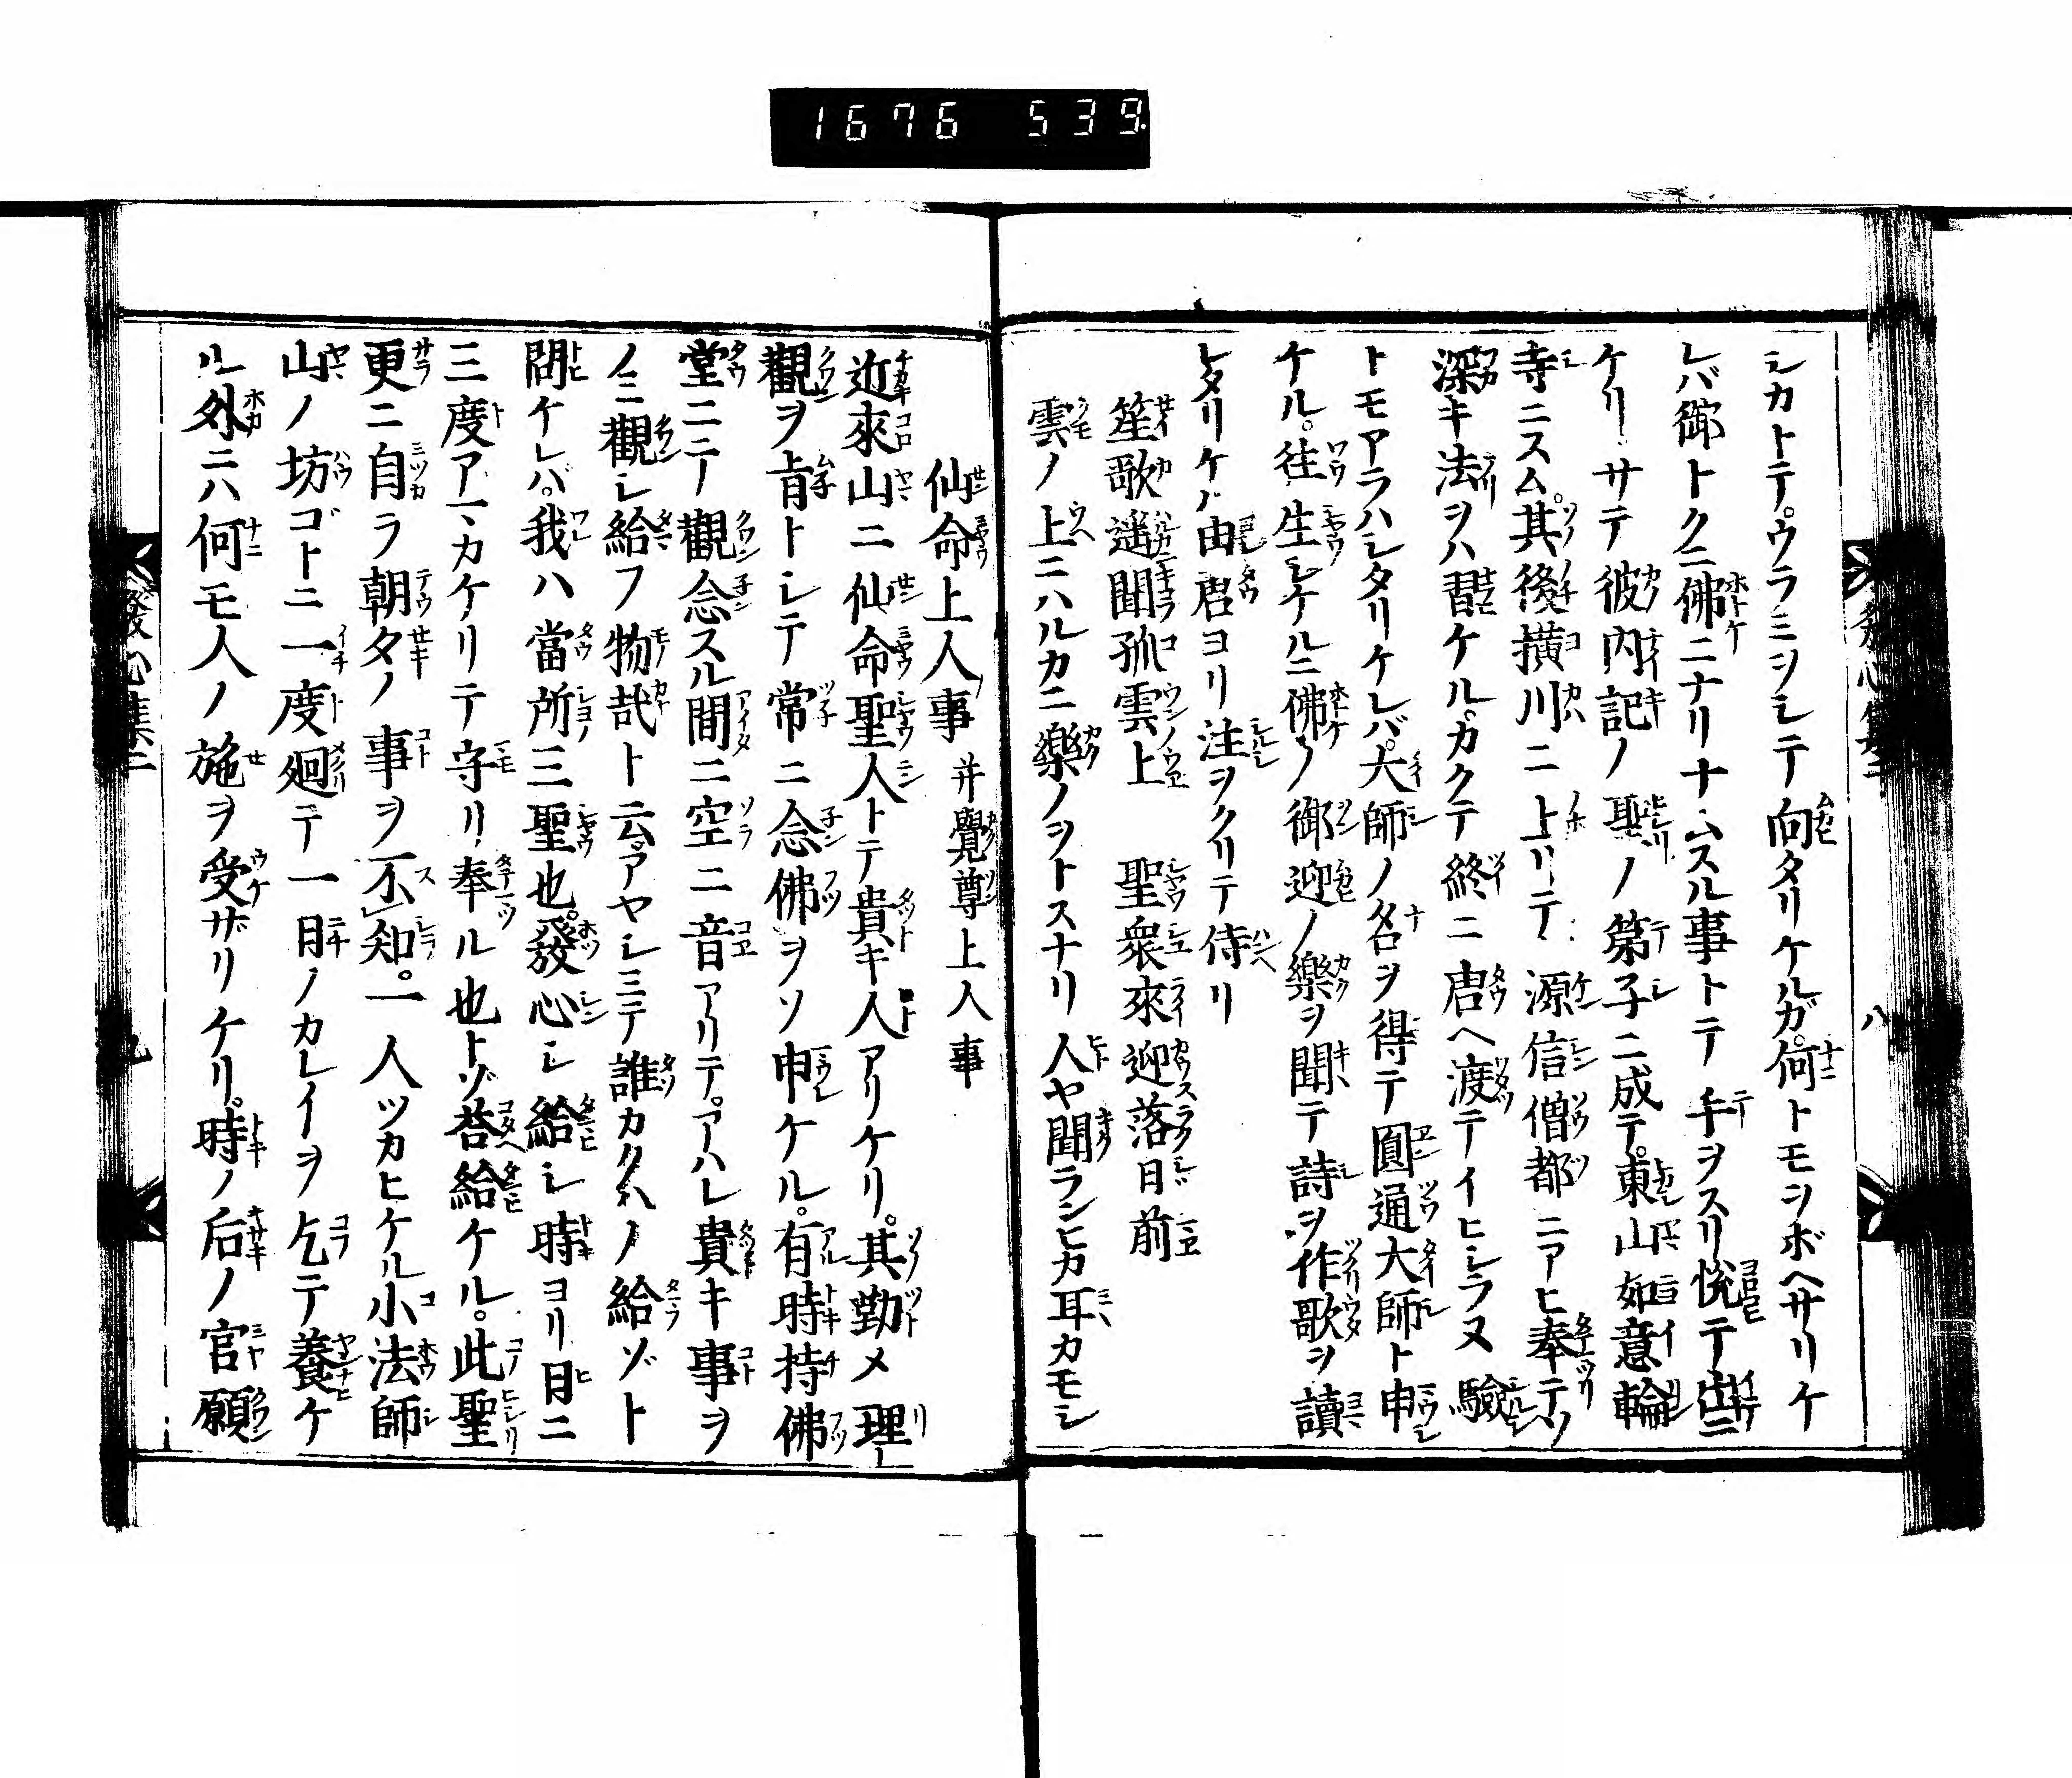 1676 539
シカトテ。ウラミヲシテ向タリケルガ。何トモヲボヘサリケ
レバ御トクニ佛ニナリナムスル事トテ手ヲスリ悦テ出ニ
ケリ。サテ彼内記ノ聖ノ第子ニ成テ。東山如意輪
寺ニスム。其後横川ニ上リテ源信僧都ニアヒ奉テソ
深キ法ヲハ習ケル。カクテ終ニ唐ヘ渡テイヒシラヌ驗
トモアラハシタリケレバ。大師ノ名ヲ得テ圓通大師ト申
ケル。往生シケルニ佛ノ御迎ノ樂ヲ聞テ詩ヲ作歌ヲ讀
レタリケル由唐ヨリ注ヲクリテ侍リ
笙歌遥聞孤雲上 聖衆來迎落日前
雲ノ上ニハルカニ樂ノヲトスナリ人ヤ聞ランヒカ耳カモシ
發心集二 八
仙命上人事 并覺尊上人事
近來山ニ仙命聖人トテ貴キ人アリケリ。其勤メ理
觀ヲ旨トシテ常ニ念佛ヲソ申ケル。有時持佛
堂ニテ觀念スル間ニ空ニ音アリテ。アハレ貴キ事ヲ
ノミ觀シ給フ物哉ト云。アヤシミテ誰カクハノ給ゾト
問ケレバ。我ハ當所三聖也。發心シ給シ時ヨリ日ニ
三度アマカケリテ守リ奉ル也トゾ荅給ケル。此聖
更ニ自ラ朝夕ノ事ヲ不知。一人ツカヒケル小法師
山ノ坊ゴトニ一度廻テ一日ノカレイヲ乞テ養ケ
ル外ニハ何モ人ノ施ヲ受ザリケリ。時ノ后ノ官願
發心集二 九